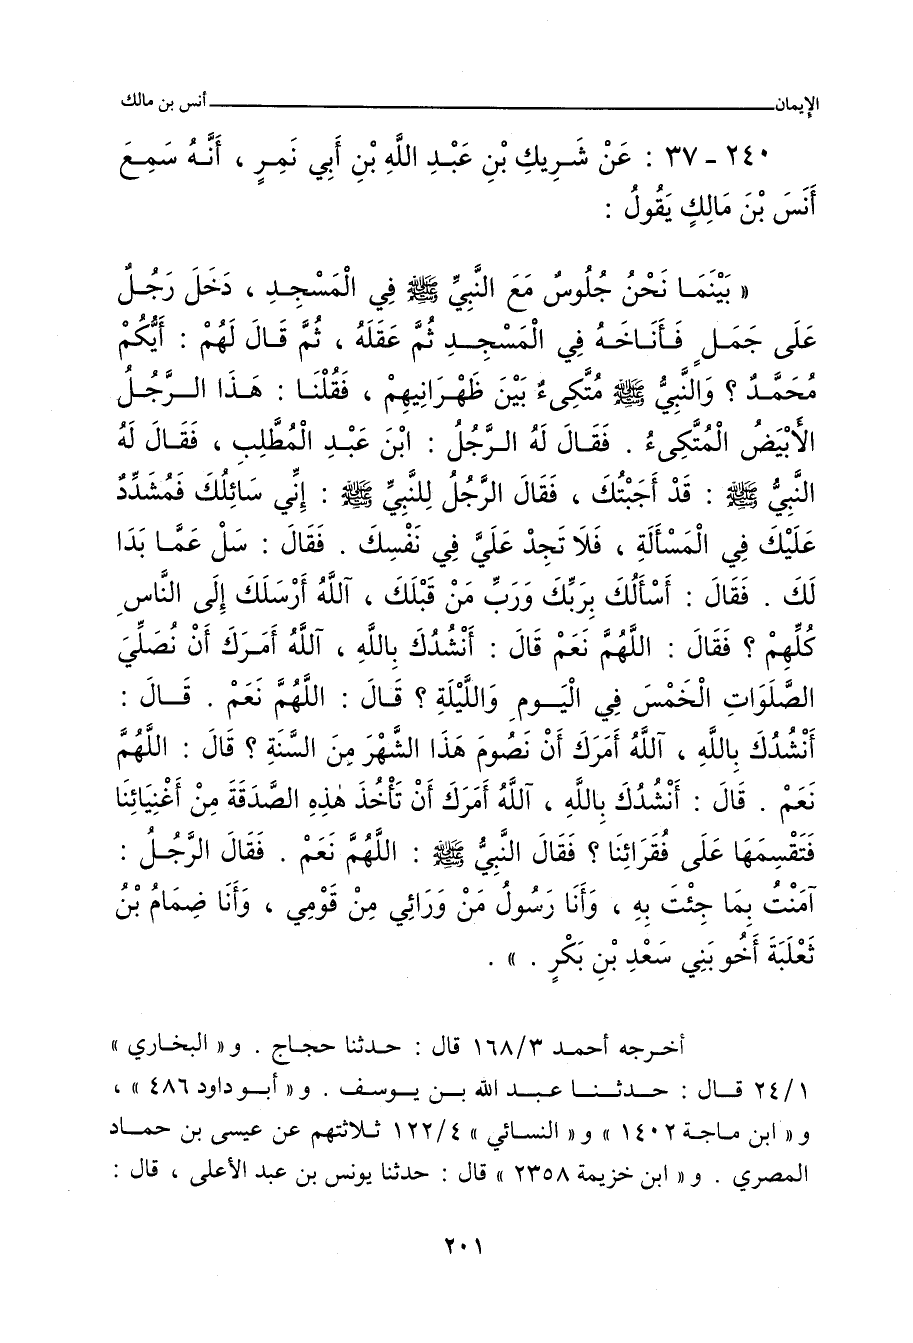 الإيمان ــــــــــ أنس بن مالك
٢٤٠ - ٣٧ : عَنْ شَرِيكِ بْنِ عَبْدِ اللَّهِ بْنِ أَبِي نَمِرٍ ، أَنَّهُ سَمِعَ
أَنَسَ بْنَ مَالِكٍ يَقُولُ :
« بَيْنَمَا نَحْنُ جُلُوسٌ مَعَ النَّبِيِّ ﷺ فِي الْمَسْجِدِ ، دَخَلَ رَجُلٌ
عَلَى جَمَلٍ فَأَنَاخَهُ فِي الْمَسْجِدِ ثُمَّ عَقَلَهُ ، ثُمَّ قَالَ لَهُمْ : أَيُّكُمْ
مُحَمَّدٌ ؟ وَالنَّبِيُّ ﷺ مُتَّكِىءٌ بَيْنَ ظَهْرَانِيهِمْ ، فَقُلْنَا : هَذَا الرَّجُلُ
الأَبْيَضُ الْمُتَّكِىءُ . فَقَالَ لَهُ الرَّجُلُ : ابْنَ عَبْدِ الْمُطَّلِبِ ، فَقَالَ لَهُ
النَّبِيُّ ﷺ : قَدْ أَجَبْتُكَ ، فَقَالَ الرَّجُلُ لِلنَّبِيِّ ﷺ : إِنِّي سَائِلُكَ فَمُشَدِّدٌ
عَلَيْكَ فِي الْمَسْأَلَةِ ، فَلَا تَجِدْ عَلَيَّ فِي نَفْسِكَ . فَقَالَ : سَلْ عَمَّا بَدَا
لَكَ . فَقَالَ : أَسْأَلُكَ بِرَبِّكَ وَرَبِّ مَنْ قَبْلَكَ ، آللَّهُ أَرْسَلَكَ إِلَى النَّاسِ
كُلِّهِمْ ؟ فَقَالَ : اللَّهُمَّ نَعَمْ قَالَ : أَنْشُدُكَ بِاللَّهِ ، آللَّهُ أَمَرَكَ أَنْ نُصَلِّيَ
الصَّلَوَاتِ الْخَمْسَ فِي الْيَوْمِ وَاللَّيْلَةِ ؟ قَالَ : اللَّهُمَّ نَعَمْ . قَالَ :
أَنْشُدُكَ بِاللَّهِ ، آللَّهُ أَمَرَكَ أَنْ نَصُومَ هَذَا الشَّهْرَ مِنَ السَّنَةِ ؟ قَالَ : اللَّهُمَّ
نَعَمْ . قَالَ : أَنْشُدُكَ بِاللَّهِ ، آللَّهُ أَمَرَكَ أَنْ تَأْخُذَ هٰذِهِ الصَّدَقَةَ مِنْ أَغْنِيَائِنَا
فَتَقْسِمَهَا عَلَى فُقَرَائِنَا ؟ فَقَالَ النَّبِيُّ ﷺ : اللَّهُمَّ نَعَمْ . فَقَالَ الرَّجُلُ :
آمَنْتُ بِمَا جِئْتَ بِهِ ، وَأَنَا رَسُولُ مَنْ وَرَائِي مِنْ قَوْمِي ، وَأَنَا ضِمَامُ بْنُ
ثَعْلَبَةَ أَخُو بَنِي سَعْدِ بْنِ بَكْرٍ . » .
أخرجه أحمد ١٦٨/٣ قال : حدثنا حجاج . و« البخاري »
٢٤/١ قال : حدثنا عبد الله بن يوسف . و« أبو داود ٤٨٦ » ،
و« ابن ماجة ١٤٠٢ » و« النسائي » ١٢٢/٤ ثلاثتهم عن عيسى بن حماد
المصري . و« ابن خزيمة ٢٣٥٨ » قال : حدثنا يونس بن عبد الأعلى ، قال :
٢٠١